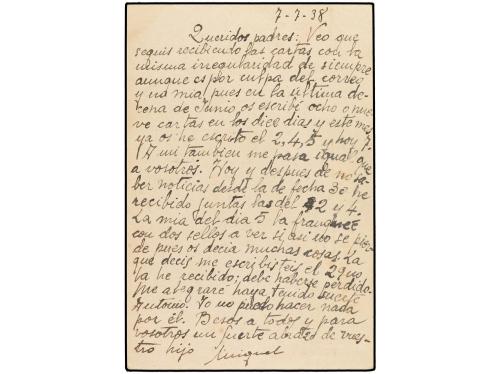 7-7-38
Queridos padres: Veo que
seguis recibiendo las cartas con la
misma irregularidad de siempre
aunque es por culpa del correo
y no mia, pues en la última de-
cena de Junio, os escribí ocho o nue-
ve cartas en los diez dias y este mes
ya os he escrito el 2, 4, 5 y hoy 7.
A mi tambien me pasa igual que
a vosotros. Hoy y despues de no sa-
ber noticias desde la de fecha 30 he
recibido juntas las del 2 y 4.
La mia del dia 5 la franqueé
con dos sellos a ver si asi no se pier-
de pues os decia muchas cosas. La
que decis me escribisteis el 29 no
la he recibido; debe haberse perdido.
Me alegraré haya tenido suerte
Antonio. Yo no puedo hacer nada
por él. Besos a todos y para
vosotros un fuerte abrazo de vues-
tro hijo Miguel